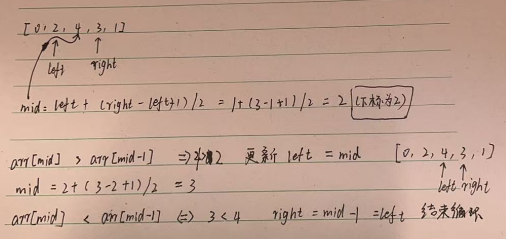 [0, 2, 4, 3, 1]
left right
mid = left + (right - left+1)/2 = 1+(3-1+1)/2 = 2 (下标为2)
arr[mid] > arr[mid-1] => 2 更新 left = mid [0, 2, 4, 3, 1]
mid = 2+(3-2+1)/2 = 3 left right
arr[mid] < arr[mid-1] <=> 3<4 right = mid-1 = left 结束循环